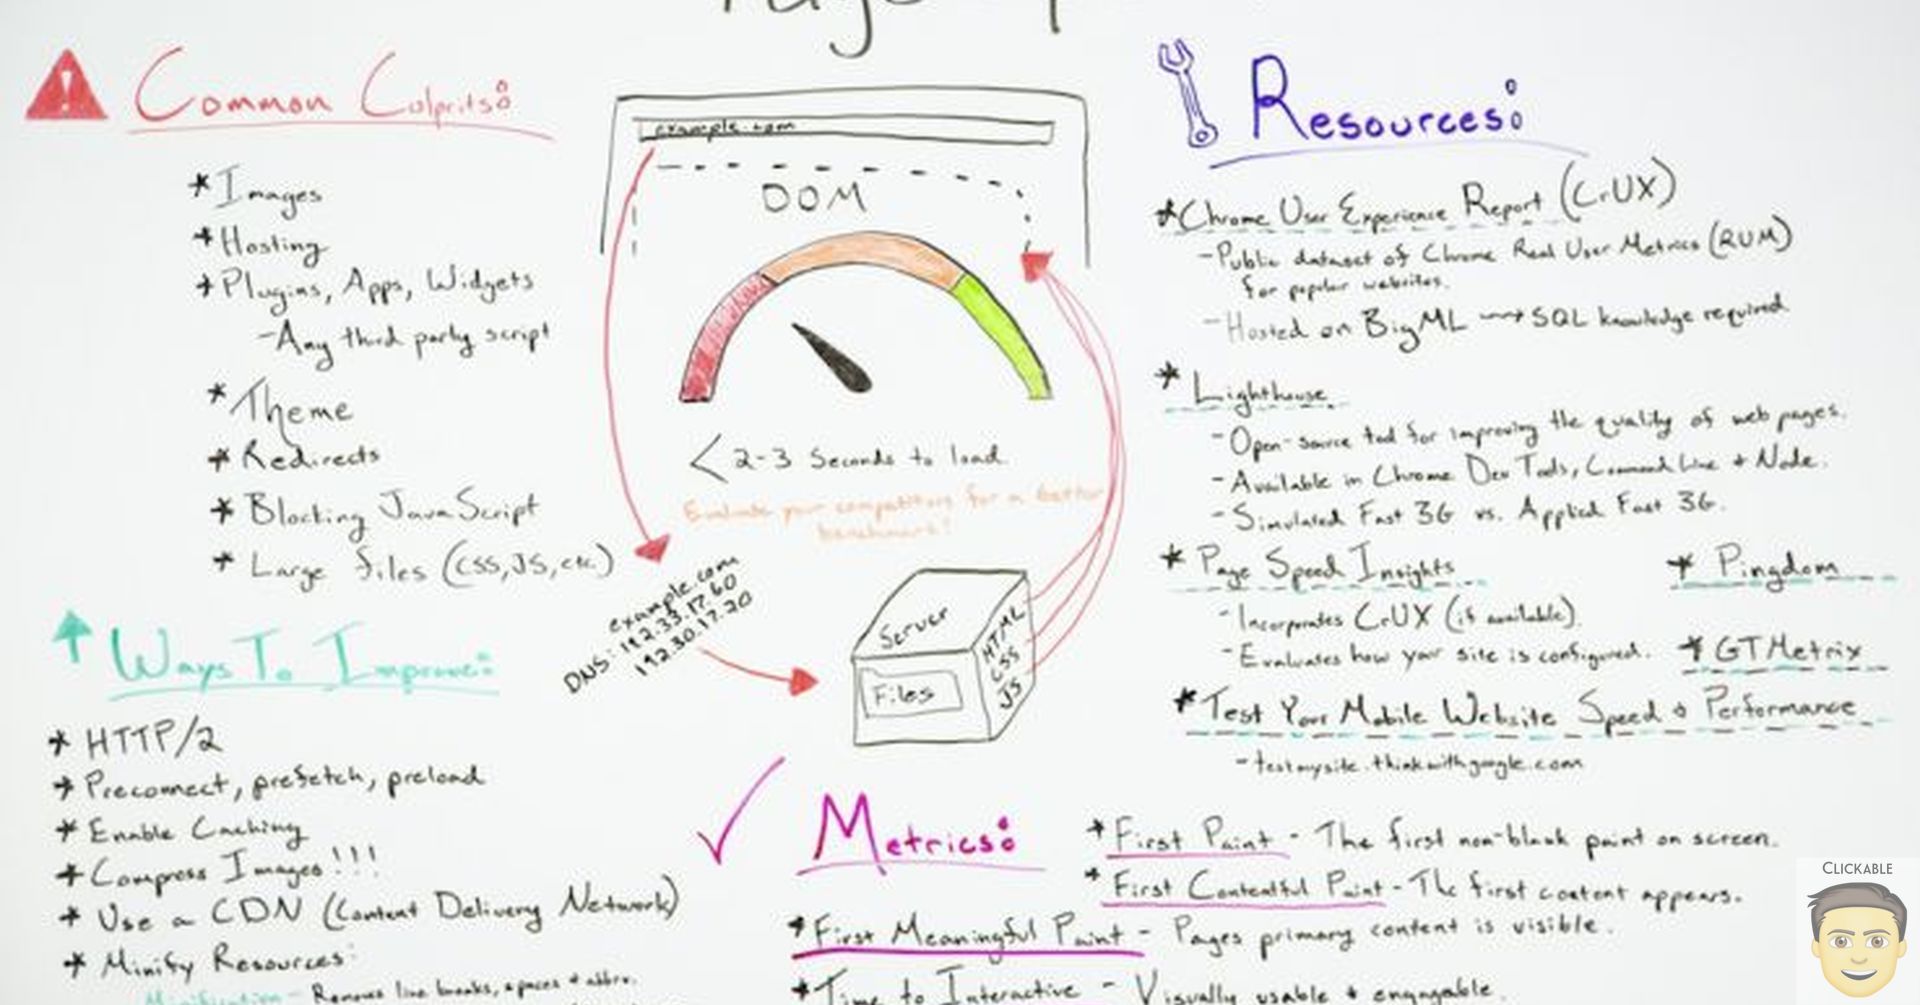 Common Culprits:
* Images
* Hosting
* Plugins, Apps, Widgets
- Any third party script
* Theme
* Redirects
* Blocking JavaScript
* Large files (CSS, JS, etc.)
Ways To Improve:
* HTTP/2
* Preconnect, prefetch, preload
* Enable Caching
* Compress Images!!!
* Use a CDN (Content Delivery Network)
* Minify Resources:
Minification - Removes line breaks, spaces + abbrv.
example.com
DOM
< 2-3 Seconds to load
Evaluate your competitors for a better
benchmark!
example.com
DNS: 192.33.17.60
192.30.17.20
Server
Files
HTML
CSS
JS
Resources:
* Chrome User Experience Report (CrUX)
- Public dataset of Chrome Real User Metrics (RUM)
for popular websites.
- Hosted on BigML → SQL knowledge required
* Lighthouse
- Open-source tool for improving the quality of web pages.
- Available in Chrome Dev Tools, Command Line + Node.
- Simulated Fast 3G vs. Applied Fast 3G.
* Page Speed Insights
- Incorporates CrUX (if available)
- Evaluates how your site is configured.
* Pingdom
* GTMetrix
* Test Your Mobile Website Speed & Performance
- testmysite.thinkwithgoogle.com
Metrics:
* First Paint - The first non-blank paint on screen.
* First Contentful Paint - The first content appears.
* First Meaningful Paint - Pages primary content is visible.
* Time to Interactive - Visually usable + engagable.
CLICKABLE